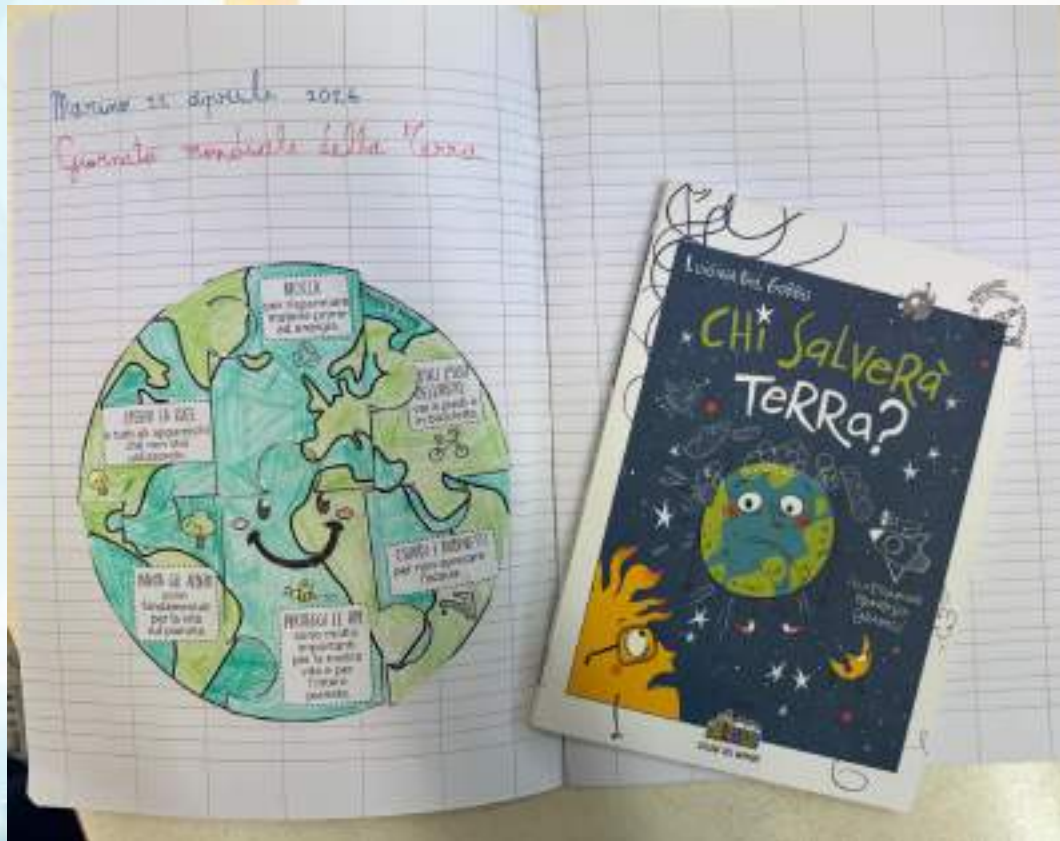 Marino 22 aprile 2026
Giornata mondiale della Terra
RICICLA
per risparmiare
materie prime
ed energia.
SPEGNI LA LUCE
e tutti gli apparecchi
che non stai
utilizzando.
vai a piedi o
in bicicletta.
CHIUDI I RUBINETTI
per non sprecare
l'acqua.
PIANTA GLI ALBERI
sono
fondamentali
per la vita
sul pianeta.
PROTEGGI LE API
sono molto
importanti
per la nostra
vita e per
l'intero
pianeta.
LUIGINA DEL GOBBO
CHi SaLVeRà
TeRRa?